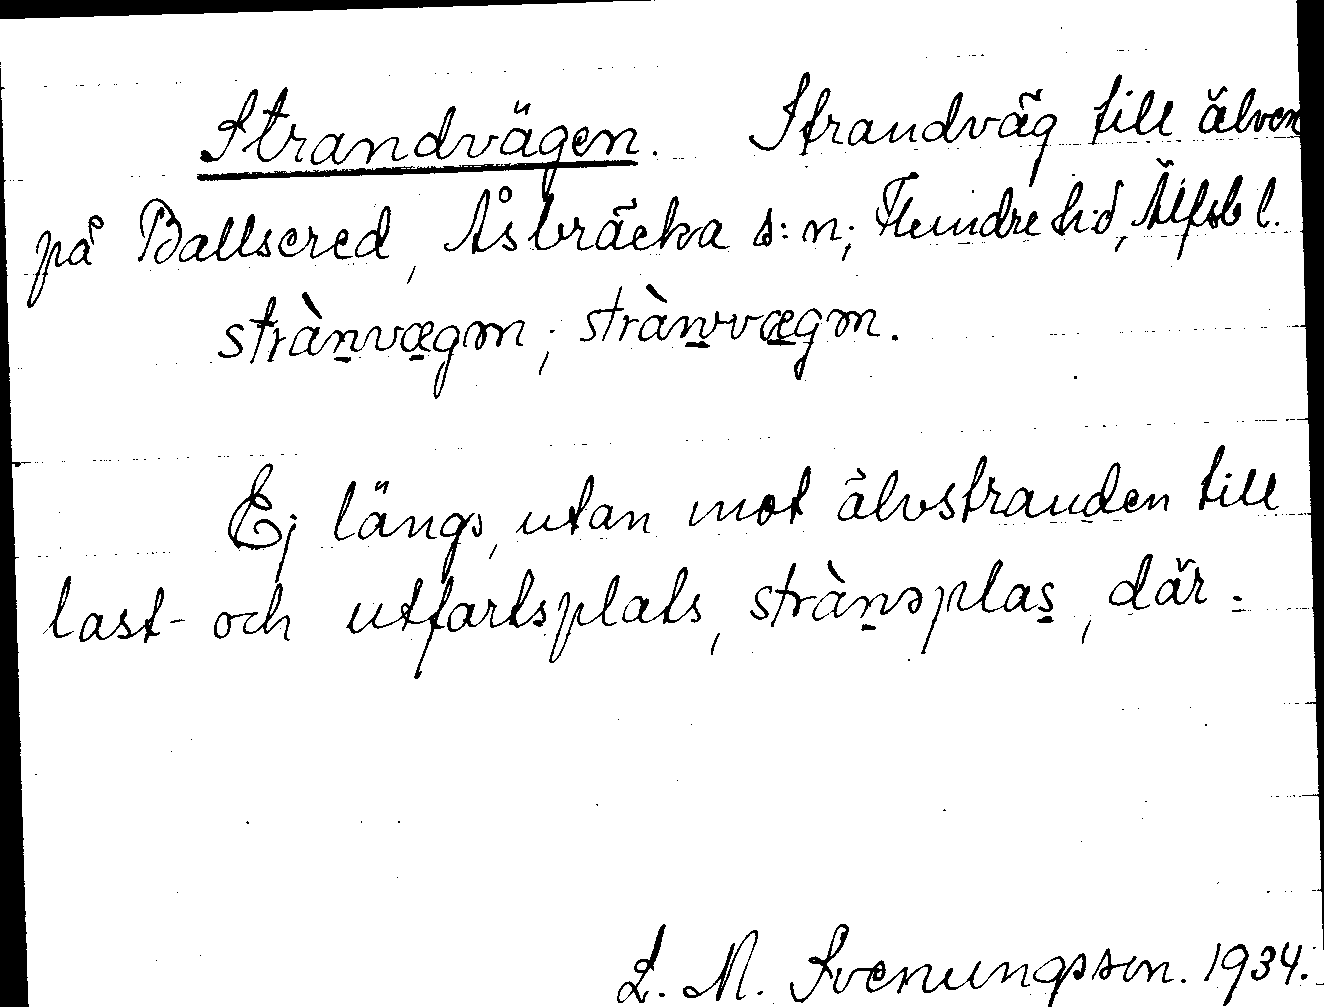 Strandvägen. Strandväg till älven
på Ballsered, Åsbräcka s:n; Flundre hd, Älfsb l.
strànvægm; strànvvægm.
Ej längs, utan mot älvstranden till
last- och utfartsplats, strànsplas, där.
L. M. Svenungsson. 1934.